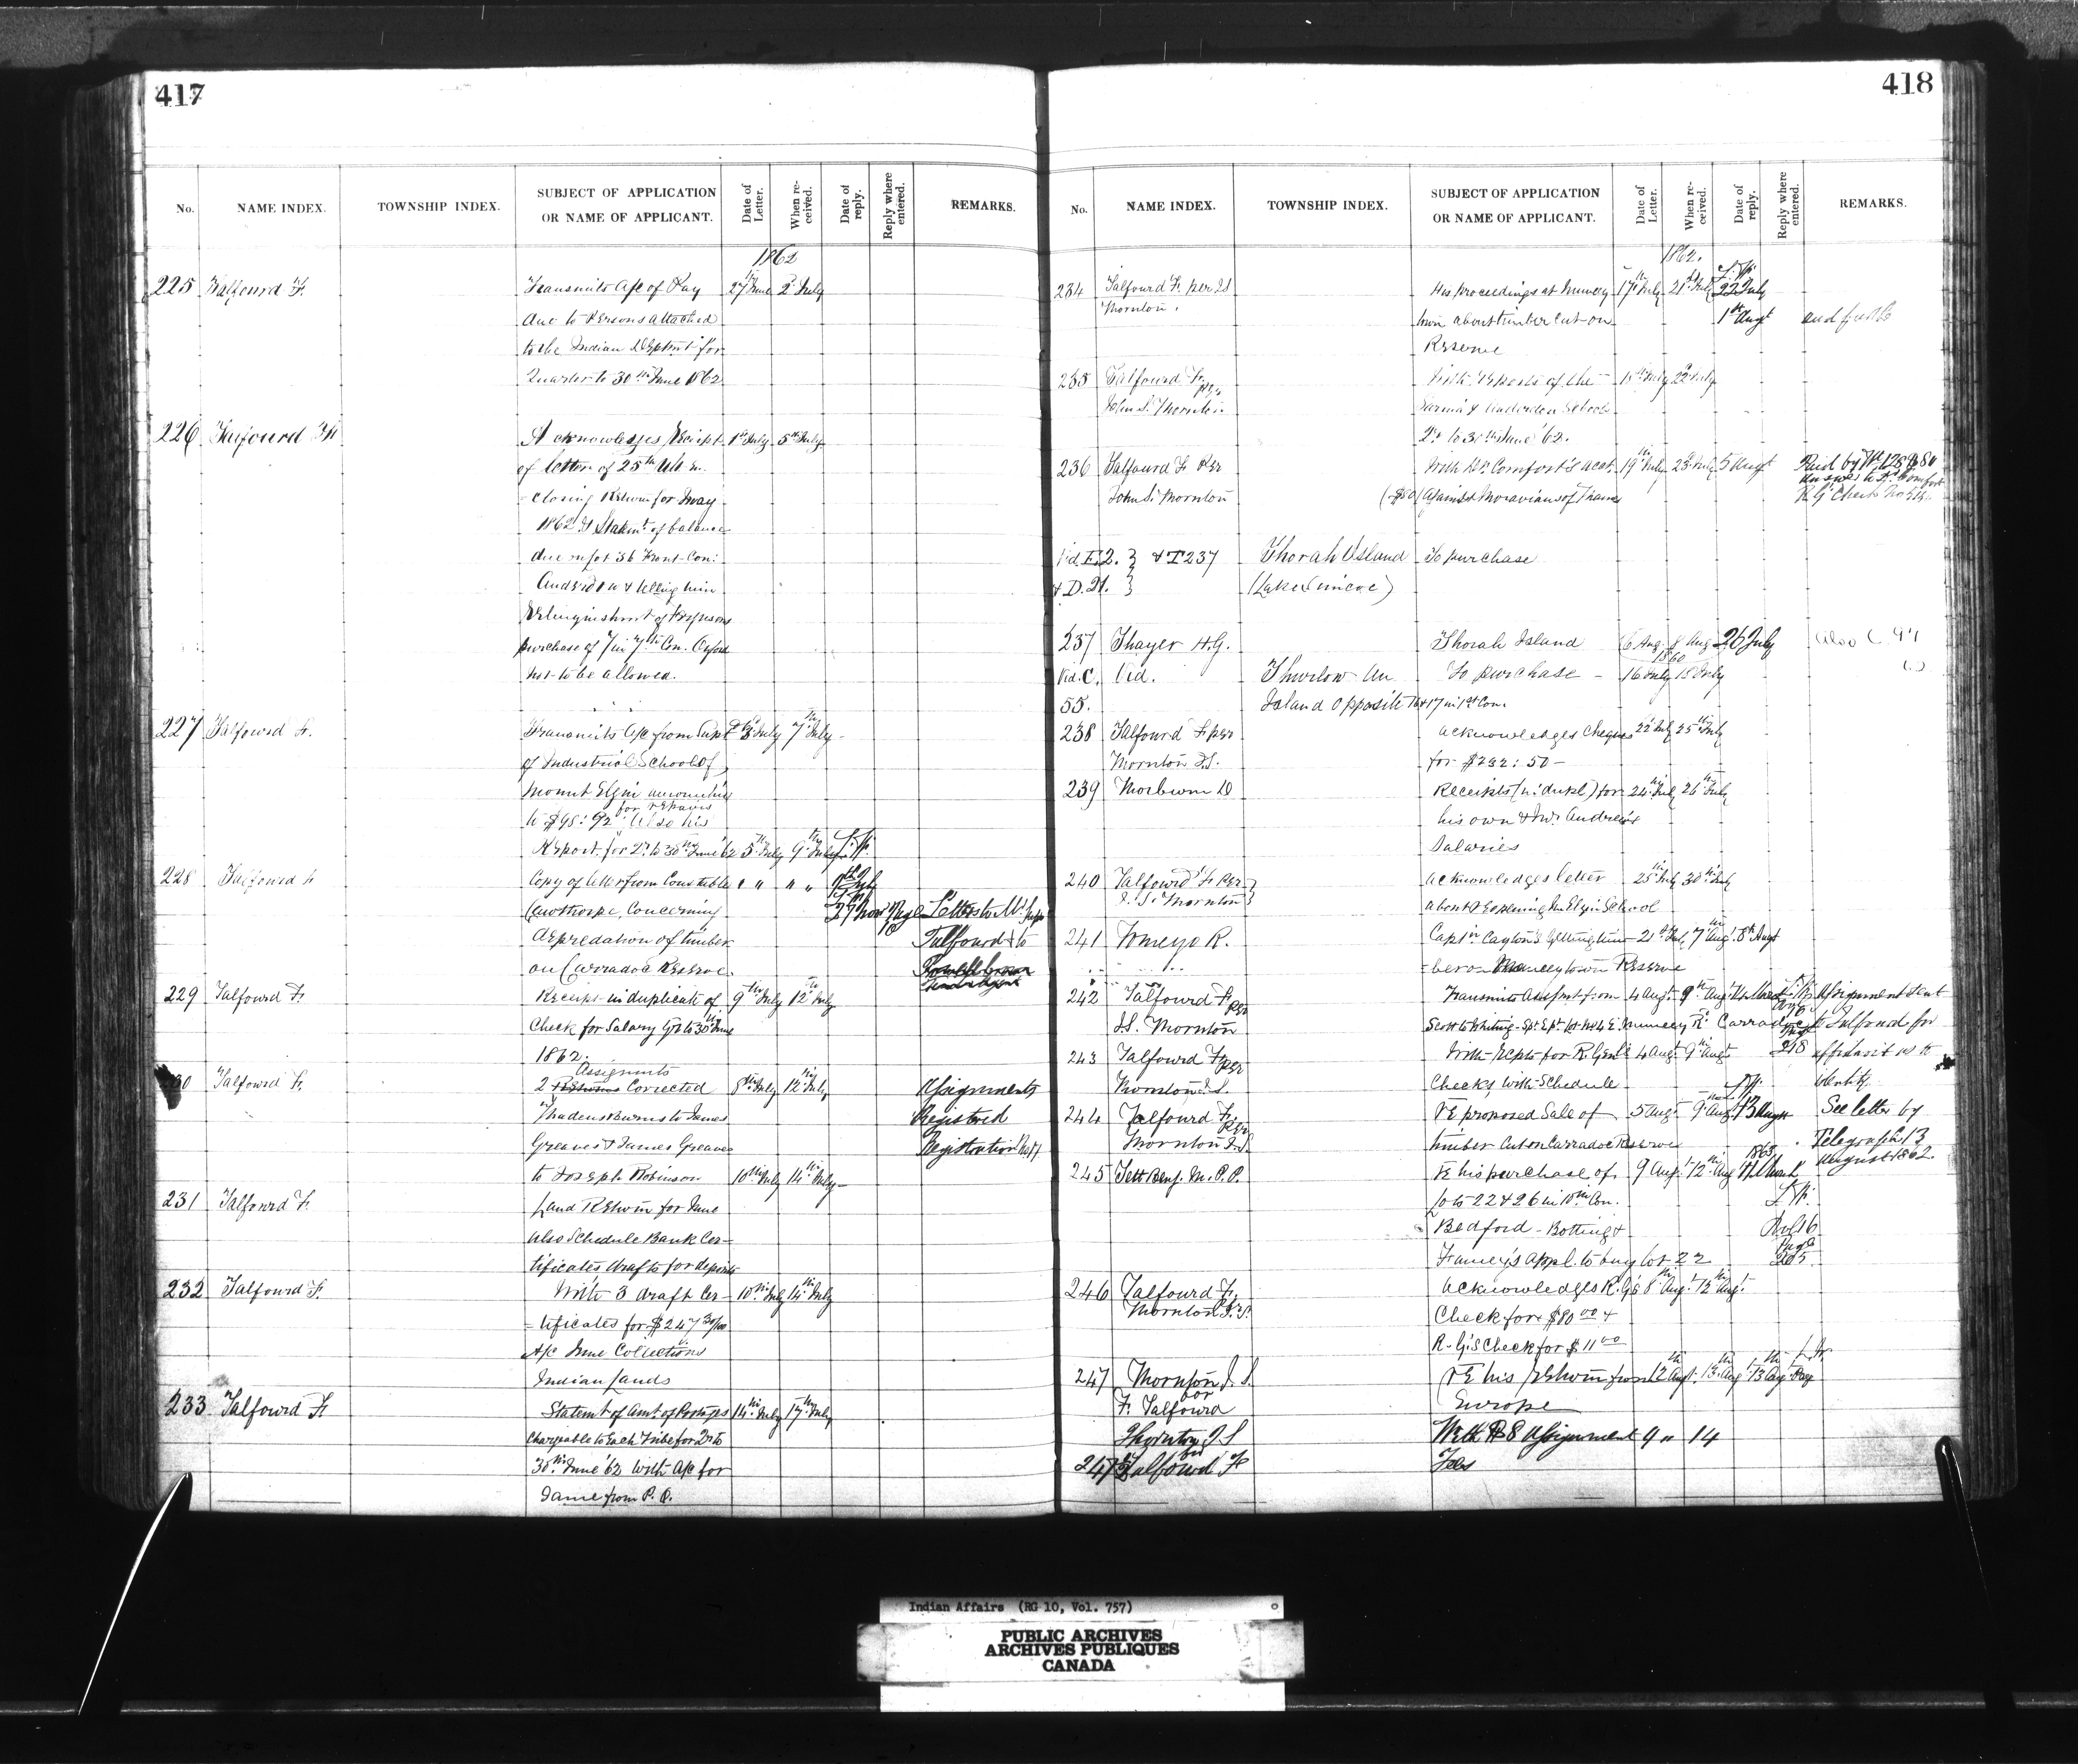 417
No. NAME INDEX. TOWNSHIP INDEX. SUBJECT OF APPLICATION OR NAME OF APPLICANT. Date of Letter. When re-ceived. Date of reply. Reply where entered. REMARKS.
1862
225 Talfourd F. Transmits A/c of Pay 27th June 2d July
due to Persons attached
to the Indian Deptmt for
Quarter to 30th June 1862
226 Talfourd F. Acknowledges Receipt 1st July 5th July
of letter of 25th Ult. en
-closing Return for May
1862 & Statemt of balance
due on lot 36 Front Con:
Anderdon & telling him
Relinquishment of
purchase of 7 in 7th Con. Orford
not to be allowed.
227 Talfourd F. Transmits A/c from Supt 3d July 7th July
of Industrial School of
Mount Elgin amounting
for repairs
to $98:92 Also his
Report for 2r to 30th June 62 5th July 9th July
228 Talfourd F. Copy of letter from Constable " " " "
Cawthorpe, Concerning 27 Nov Page Letters to
depredation of timber Talfourd & to
on Carradoc Reserve.
229 Talfourd F. Receipt in duplicate of 9th July 12th July
Check for Salary Qr to 30th June
1862.
Assignmts
230 Talfourd F. 2 Returns Corrected 8th July 12th July Assignments
Thadeus Burns to James Registered
Greaves & James Greaves Registration
to Joseph Robinson 10th July 14th July
231 Talfourd F. Land Return for June
also Schedule Bank Cer-
tificates drafts for deposits
232 Talfourd F. With 3 draft Cer- 10th July 14th July
-tificates for $247 30/100
A/c June Collections
Indian Lands
233 Talfourd F. Statemt of Amt of Postages 14th July 17th July
Chargeable to Each Tribe for 2r to
30th June '62 with A/c for
Same from P. O.
418
No. NAME INDEX. TOWNSHIP INDEX. SUBJECT OF APPLICATION OR NAME OF APPLICANT. Date of Letter. When re-ceived. Date of reply. Reply where entered. REMARKS.
1862.
234 Talfourd F. per IS His proceedings at Muncey 17th July 21st July 22 July
Thornton. town about timber cut on 1st Augt
Reserve
235 Talfourd F. per With Reports of the 18th July 22d July
John S. Thornton Sarnia & Anderdon Schools
2r to 30th June '62.
236 Talfourd F. Per With Dr Comfort's acct. 19th July 23d July 5 Augt Paid by
John S. Thornton ($80) Against Moravians of Thames
Vid. I 2. } & T237 Thorah Island To purchase
& D. 21. } (Lake Simcoe)
237 Thayer H.G. Thorah Island 6 Aug 8 Aug 26 July Also C 97
1860
Vid. C. Vid. Thurlow An To purchase - 16 July 18 July
55. Island opposite 16 & 17 in 1st Con.
238 Talfourd F. per acknowledges Cheques 22d July 25th July
Thornton I.S. for $232:50 -
239 Thorburn D Receipts (in dupl.) for 24th July 26th July
his own & Wm Andrews
Salaries
240 Talfourd F. per acknowledges letter 25th July 30th July
I. S. Thornton about Reopening Mt Elgin School
241 Tomeyo R. 21st July 7th Augt 8th Augt
-ber on Munceytown Reserve
242 Talfourd F. per Transmits Assignmt from 4 Augt 9th Augt Assignment Sent
I.S. Thornton to Talfourd for
243 Talfourd F. per With Rcpts for R. Genl's 4 Augt 9th Augt 218 affidavit as to
Thornton I. S. Checks with Schedule identity
244 Talfourd F. per RE proposed Sale of 5 Augt 9th Augt 13 Augt See letter by
Thornton I.S. timber cut on Carradoc Reserve Telegraph 13
245 Tett Benj. M.P.P. RE his purchase of 9 Augt 12th Aug 1863 August 1862.
lots 22 & 26 in 10th Con.
Bedford - Botting &
Appl. to buy lot 22 Page 205
246 Talfourd F. acknowledges R.G's 8th Augt 12th Augt
Thornton I.S. Check for $80 00 &
R.G's Check for $11 00
247 Thornton I. S. RE his return from 12th Augt 13th Aug 13th Aug
for
F. Talfourd Europe
Thornton I S With 8 Assignment 9 " 14
for
247½ Talfourd F Fees
Indian Affairs (RG 10, Vol. 757)
PUBLIC ARCHIVES
ARCHIVES PUBLIQUES
CANADA